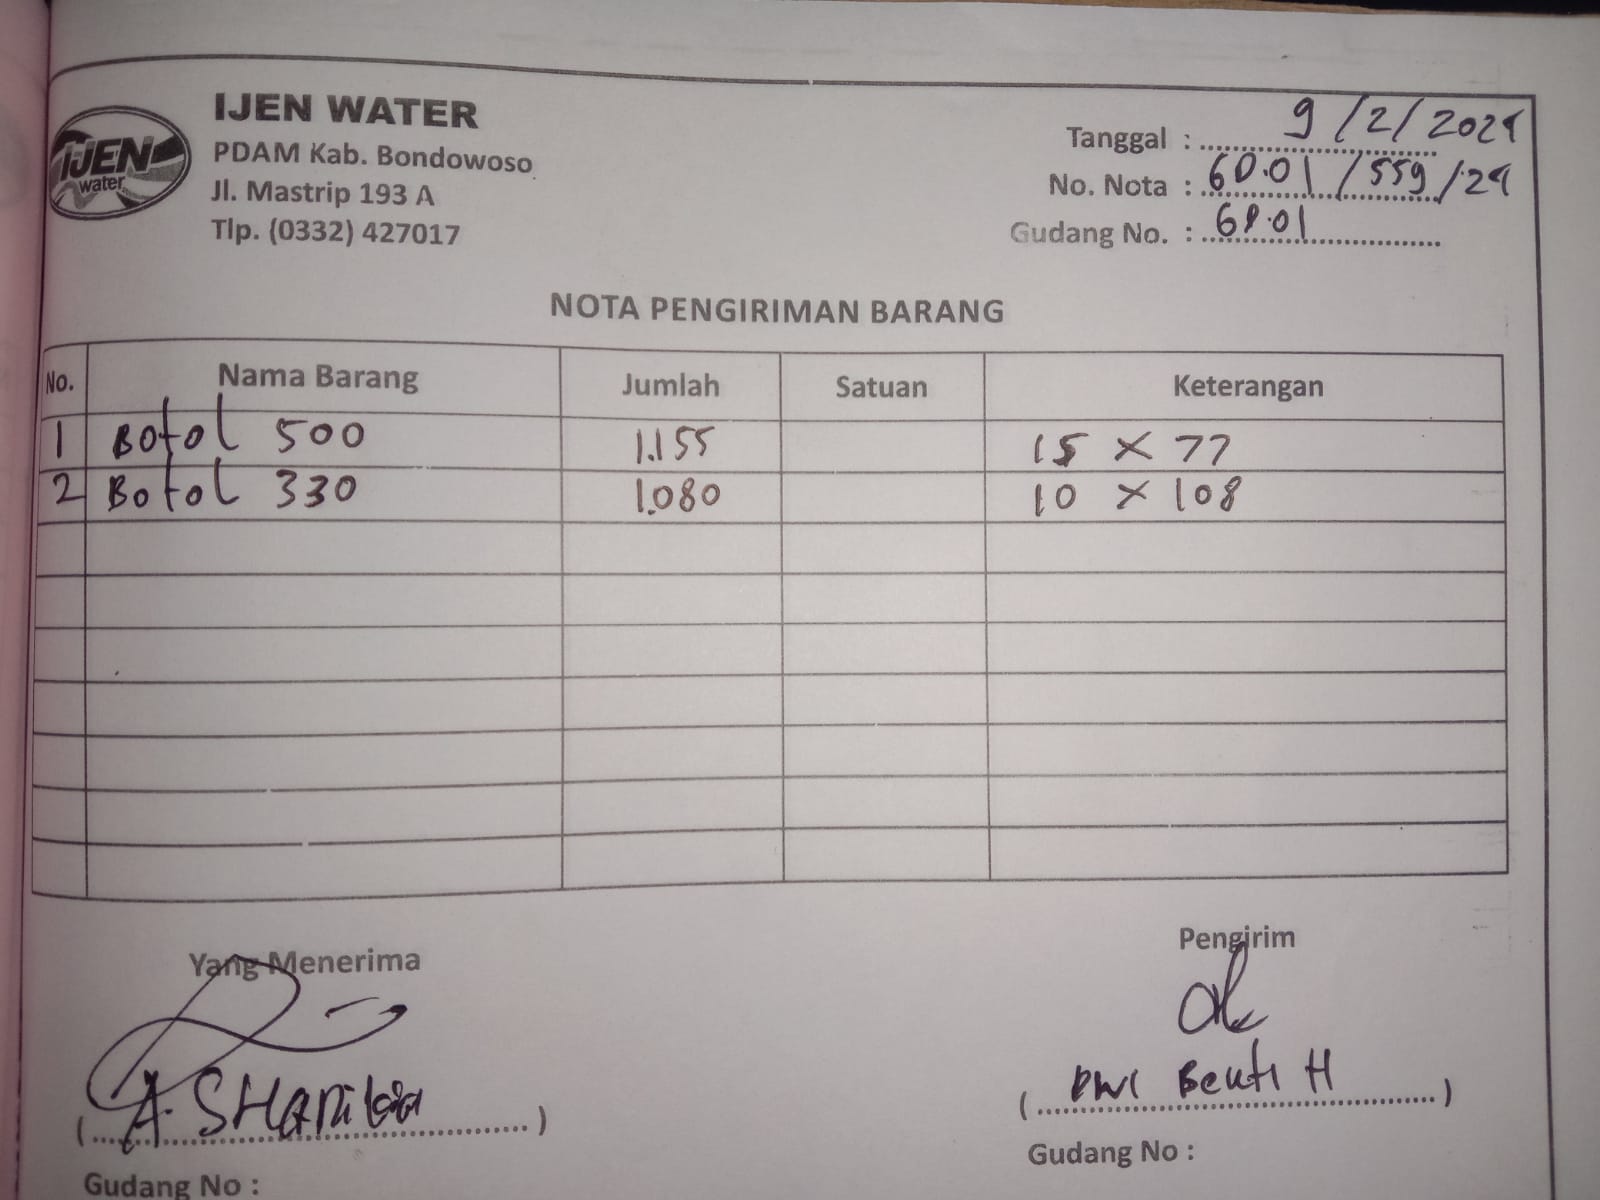 IJEN WATER
PDAM Kab. Bondowoso
Jl. Mastrip 193 A
Tlp. (0332) 427017
IJEN
water
Tanggal : 9/2/2024
No. Nota : 60.01/559/24
Gudang No. : 60.01
NOTA PENGIRIMAN BARANG
No. Nama Barang Jumlah Satuan Keterangan
1 Botol 500 1.155 15 x 77
2 Botol 330 1.080 10 x 108
Yang Menerima
Pengirim
(A.)
(Dwi H)
Gudang No :
Gudang No :